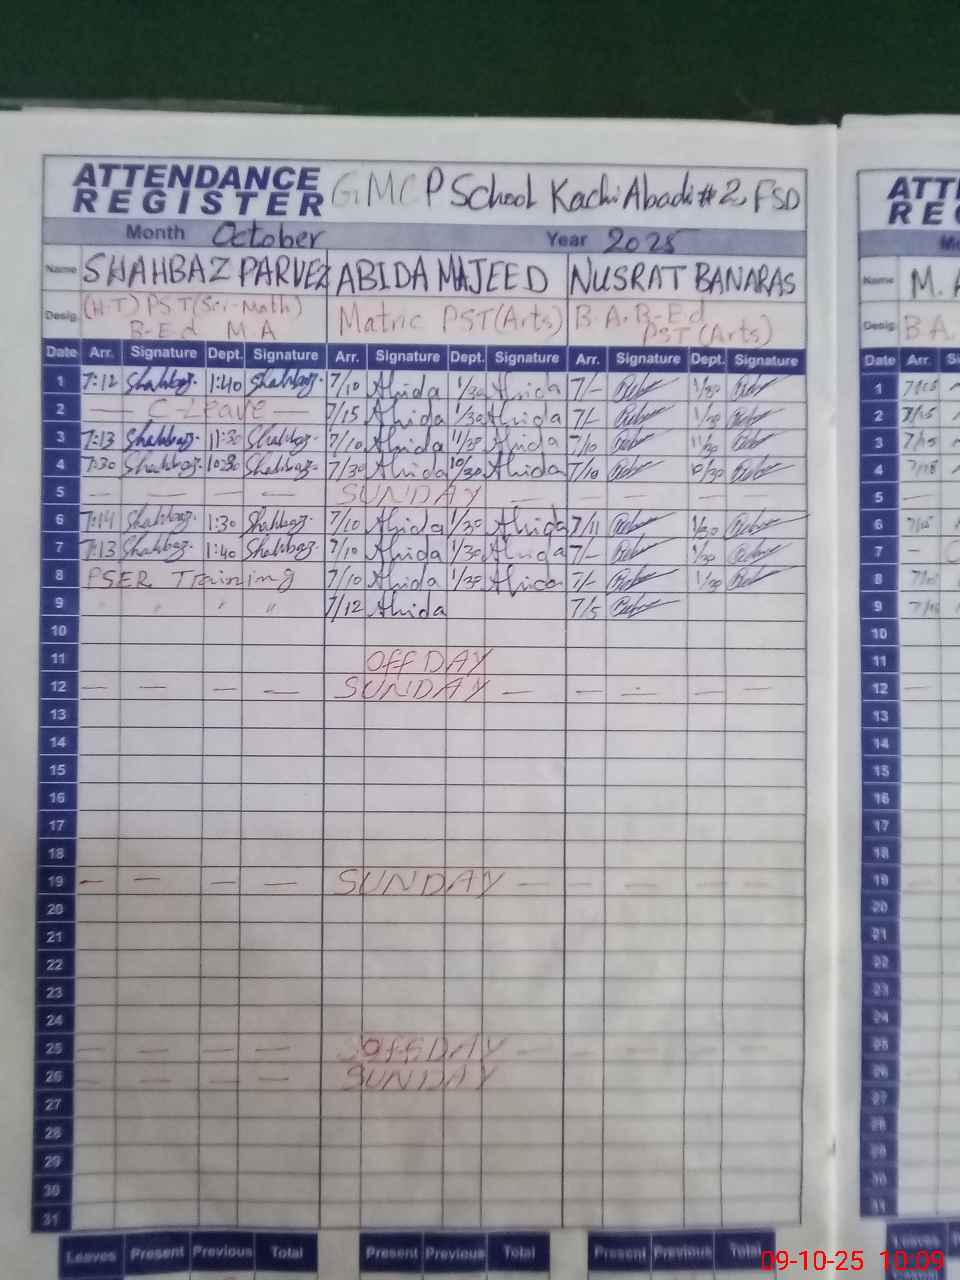 ATTENDANCE REGISTER GMCP School Kachi Abadi #2, FSD
Month October Year 2025
Name SHAHBAZ PARVEZ ABIDA MAJEED NUSRAT BANARAS
Desig. (H-T) PST (Sci-Math) B-Ed M.A Matric PST (Arts) B.A, B-Ed PST (Arts)
Date Arr. Signature Dept. Signature Arr. Signature Dept. Signature Arr. Signature Dept. Signature
1 7:12 Shahbaz. 1:40 Shahbaz. 7/10 Abida 1/30 Abida 7/- 1/30
2 — C-Leave — 7/15 Abida 1/30 Abida 7/- 1/30
3 7:13 Shahbaz. 11:30 Shahbaz. 7/10 Abida 11/30 Abida 7/10 11/30
4 7:30 Shahbaz. 10:30 Shahbaz. 7/30 Abida 10/30 Abida 7/10 10/30
5 — — — — SUNDAY — — — — —
6 7:14 Shahbaz. 1:30 Shahbaz. 7/10 Abida 1/30 Abida 7/11 1/30
7 7:13 Shahbaz. 1:40 Shahbaz. 7/10 Abida 1/30 Abida 7/- 1/30
8 PSER Training 7/10 Abida 1/30 Abida 7/- 1/30
9 " " " " 7/12 Abida 7/5
10
11 OFF DAY
12 — — — — SUNDAY — — — — —
13
14
15
16
17
18
19 — — — — SUNDAY — — — — —
20
21
22
23
24
25 — — — — OFF DAY — — — — —
26 — — — — SUNDAY — — — — —
27
28
29
30
31
Leaves Present Previous Total Present Previous Total Present Previous Total
ATT
RE
Name M. A
Desig. B A.
Date Arr. Si
1 7/15
2 7/15
3 7/15
4 7/15
5 —
6
7 —
8
9
10
11
12 —
13
14
15
16
17
18
19 —
20
21
22
23
24
25
26
27
28
29
30
31
Leaves Present
09-10-25 10:09